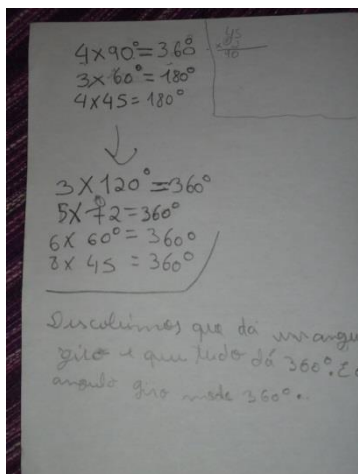 4x90°=360°
3x60°=180°
4x45=180°
45
3x120°=360°
5x72=360°
6x60°=360°
8x45=360°
Descobrimos que dá um angu
giro e que tudo dá 360°. E o
angulo giro mede 360°.